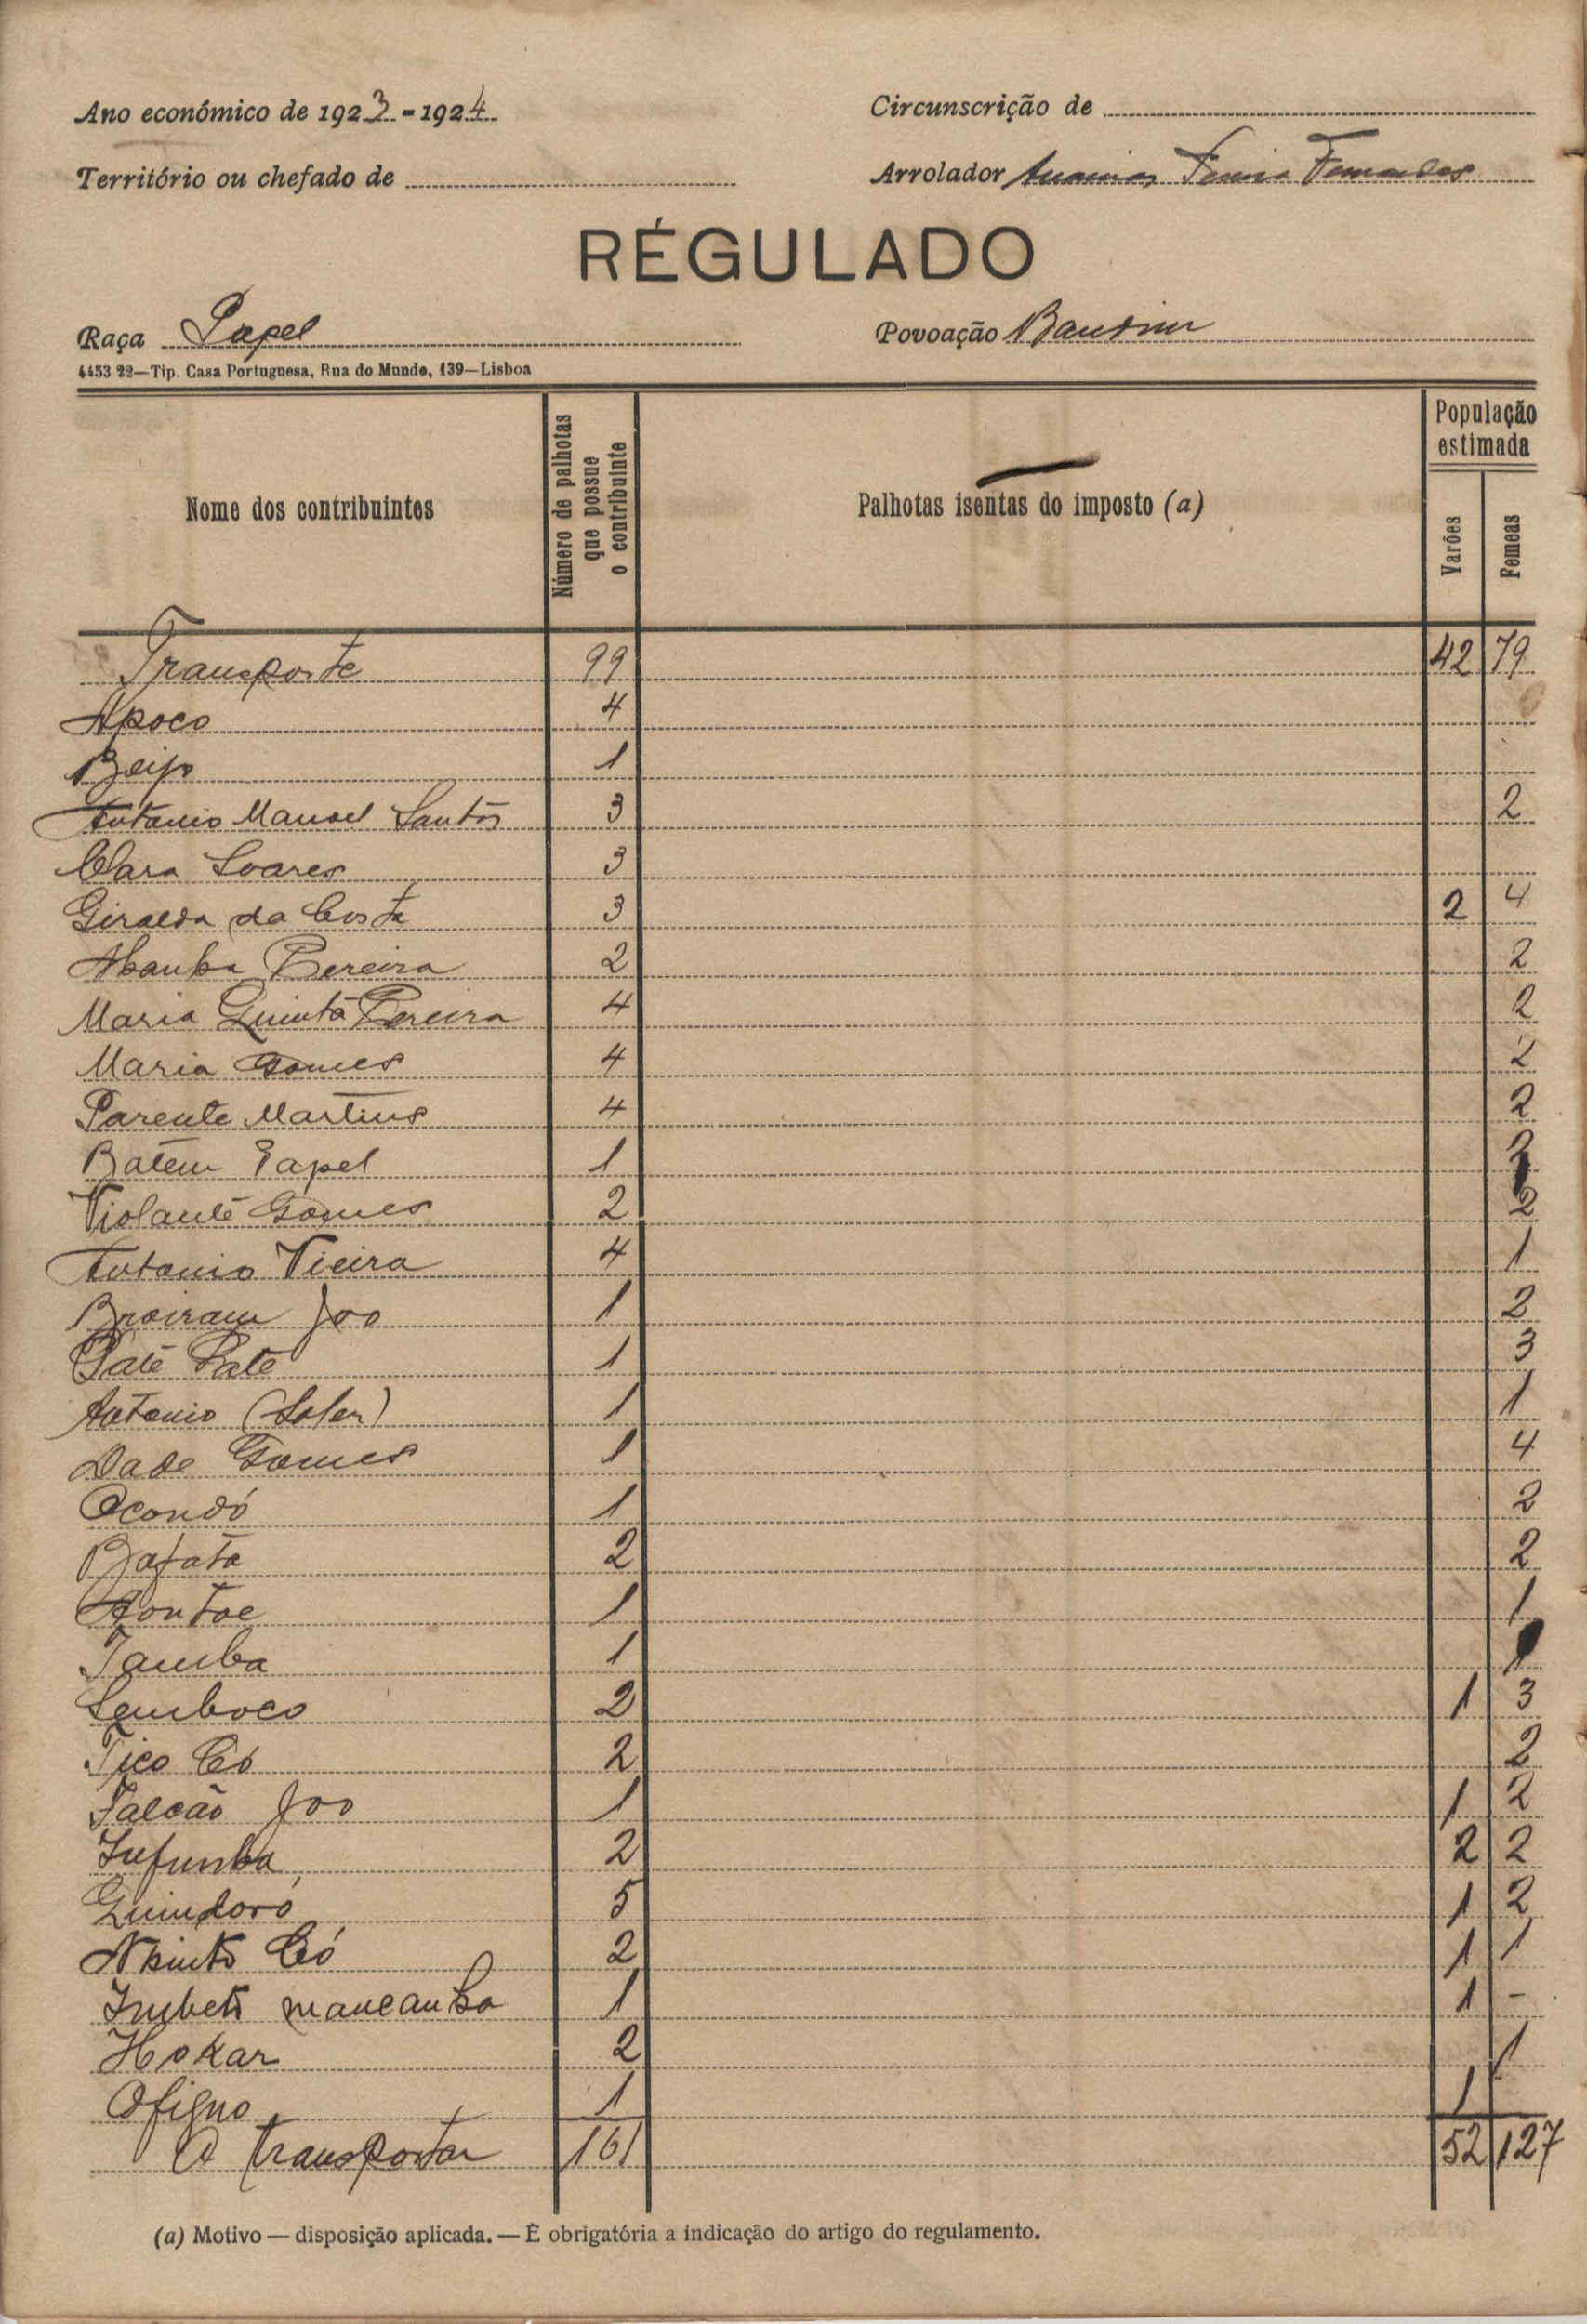 Ano económico de 1923-1924
Circunscrição de
Território ou chefado de
Arrolador Fernandes
RÉGULADO
Raça Papel
Povoação Bandim
4453 22—Tip. Casa Portuguesa, Rua do Mundo, 139—Lisboa
Nome dos contribuintes
Número de palhotas que possue o contribuinte
Palhotas isentas do imposto (a)
População estimada
Varões
Femeas
Transporte 99 42 79
Apoco 4
Beijo 1
Antonio Manoel Santos 3 2
Clara Soares 3
Giralda da Costa 3 2 4
Pereira 2 2
Maria Quinta Pereira 4 2
Maria Gomes 4 2
Parente Martins 4 2
Batem Papel 1 2
Violante Gomes 2 2
Antonio Vieira 4 1
Joo 1 2
Paté Paté 1 3
Antonio 1 1
Dade Gomes 1 4
Ocondó 1 2
Bafata 2 2
1 1
Tamba 1 1
Semboco 2 1 3
Tico Có 2 2
Falcão Joo 1 1 2
Infunba 2 2 2
Quindoró 5 1 2
Có 2 1 1
mancanha 1 1 -
Hokar 2 1
1 1
A transportar 161 52 127
(a) Motivo — disposição aplicada. — É obrigatória a indicação do artigo do regulamento.